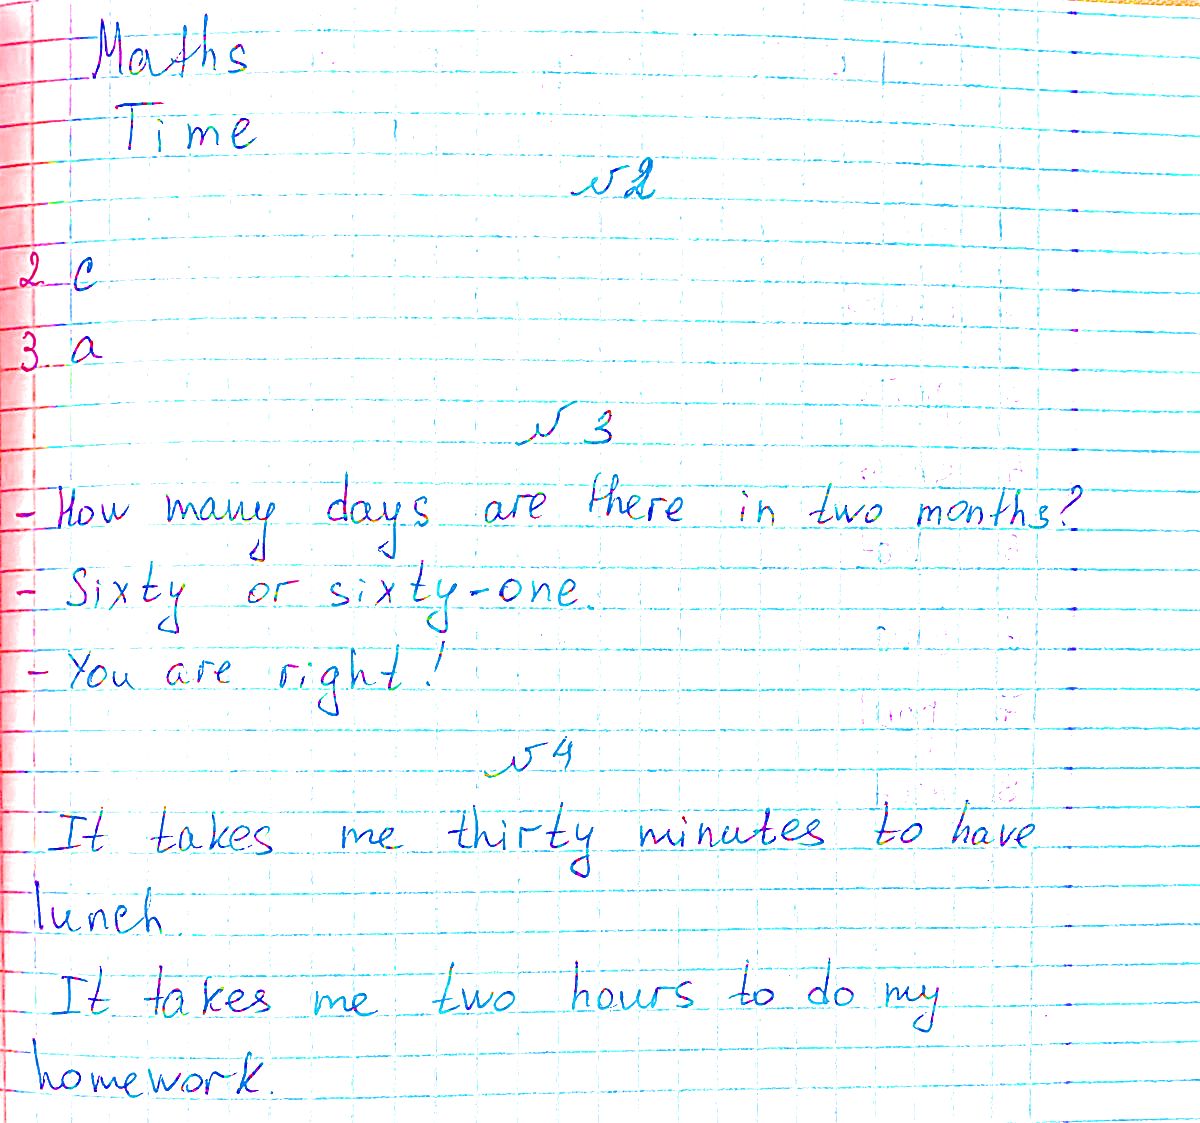 Maths
Time
№2
2 c
3 a
№ 3
- How many days are there in two months?
- Sixty or sixty-one.
- You are right!
№ 4
It takes me thirty minutes to have
lunch.
It takes me two hours to do my
homework.